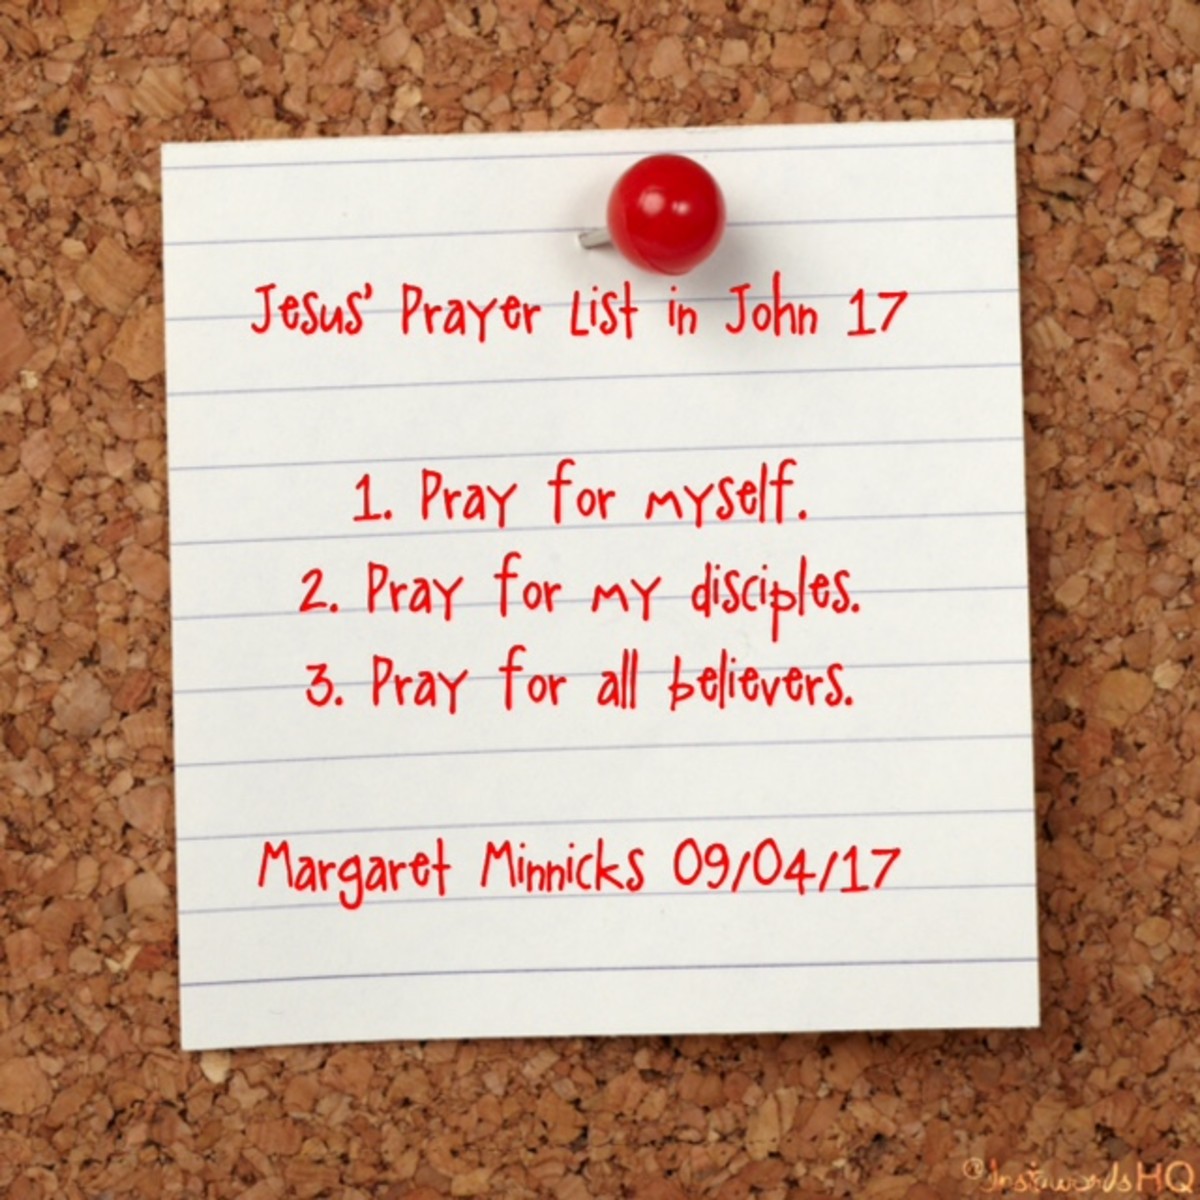 Jesus' Prayer List in John 17
1. Pray for myself.
2. Pray for my disciples.
3. Pray for all believers.
Margaret Minnicks 09/04/17
@InstawordsHQ